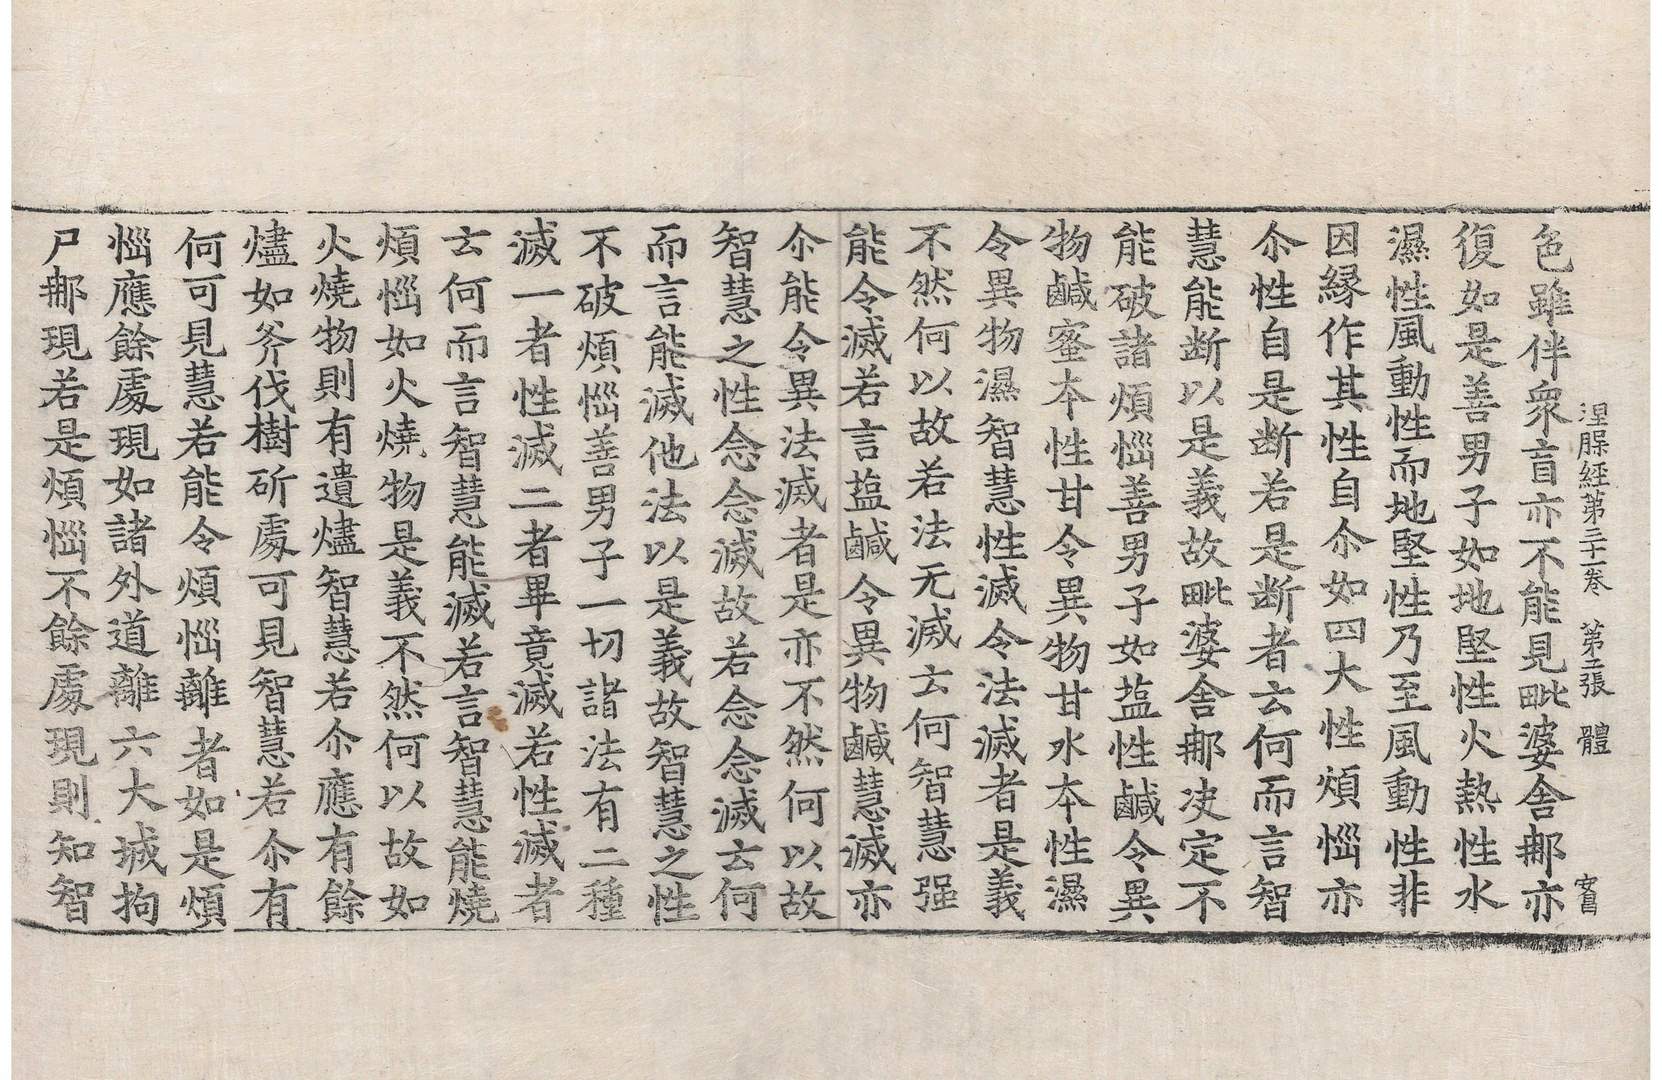 涅槃經第三十一卷 第二張 體
色雖伴衆盲亦不能見毗婆舍那亦
復如是善男子如地堅性火熱性水
濕性風動性而地堅性乃至風動性非
因縁作其性自尒如四大性煩惱亦
尒性自是断若是断者云何而言智
慧能断以是義故毗婆舍那决定不
能破諸煩惱善男子如塩性鹹令異
物鹹蜜本性甘令異物甘水本性濕
令異物濕智慧性滅令法滅者是義
不然何以故若法无滅云何智慧强
能令滅若言塩鹹令異物鹹慧滅亦
尒能令異法滅者是亦不然何以故
智慧之性念念滅故若念念滅云何
而言能滅他法以是義故智慧之性
不破煩惱善男子一切諸法有二種
滅一者性滅二者畢竟滅若性滅者
云何而言智慧能滅若言智慧能燒
煩惱如火燒物是義不然何以故如
火燒物則有遺燼智慧若尒應有餘
燼如斧伐樹斫處可見智慧若尒有
何可見慧若能令煩惱離者如是煩
惱應餘處現如諸外道離六大城拘
尸那現若是煩惱不餘處現則知智